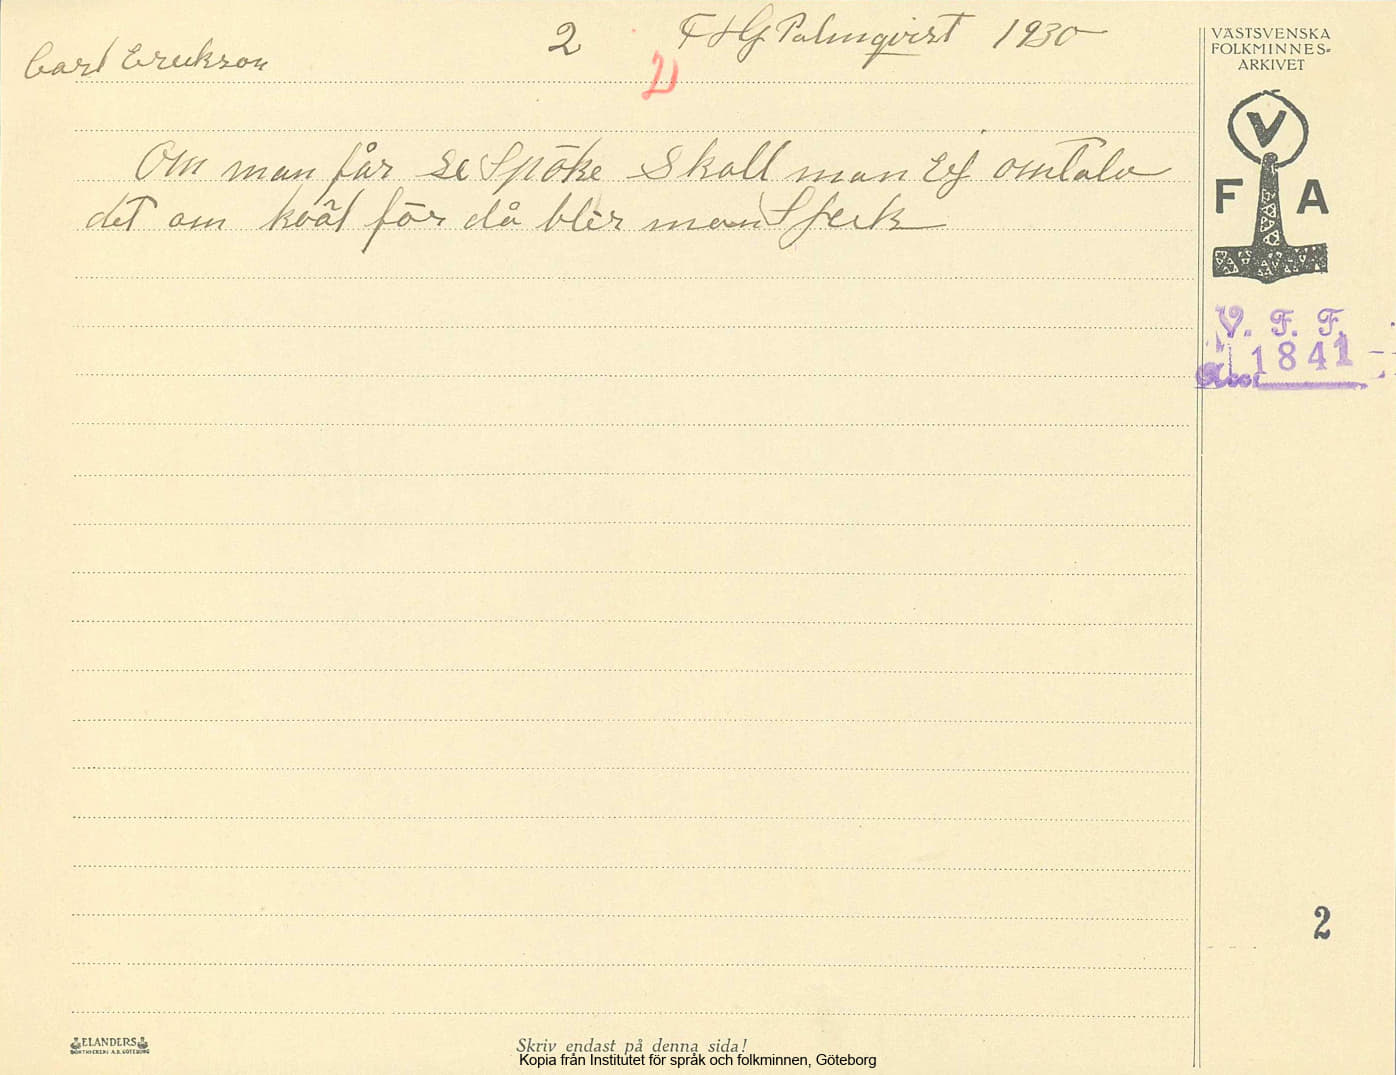 Carl Erikson 2 F H G Palmqvist 1930
2)
Om man får se Spöke Skall man Ej omtala
det om kväl för då bler man Sjuk
VÄSTSVENSKA
FOLKMINNES-
ARKIVET
V
F A
V. F. F.
1841
2
ELANDERS
GÖTEBORG
Skriv endast på denna sida!
Kopia från Institutet för språk och folkminnen, Göteborg